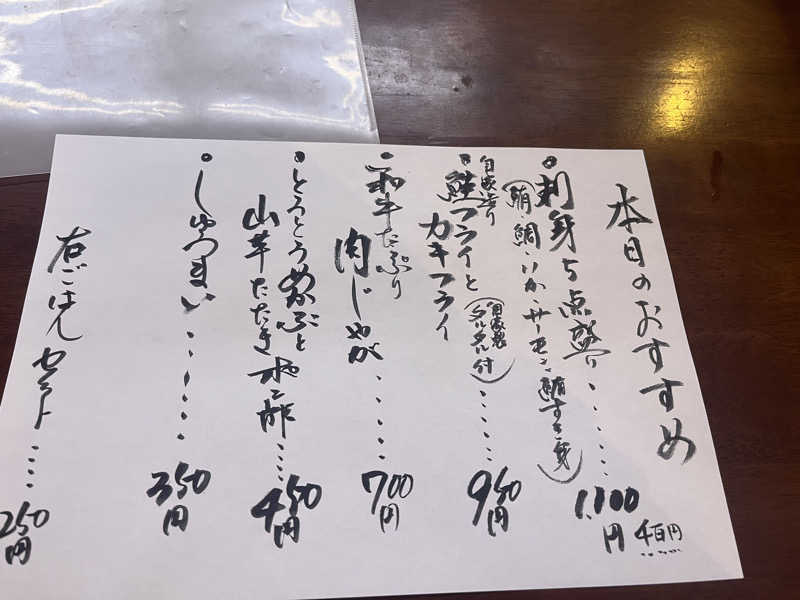 本日のおすすめ
刺身5点盛り・・・・・・1,100円
(鮪・鯛・いか・サーモン・鮪すき身)
4百円
自家造り
鮭フライと
カキフライ
(自家製タルタル付)・・・・・・950円
和牛たっぷり
肉じゃが・・・・・・700円
とろとろめかぶと
山芋たたきポン酢・・・・450円
しゅうまい・・・・・・350円
右ごはんセット・・・・250円